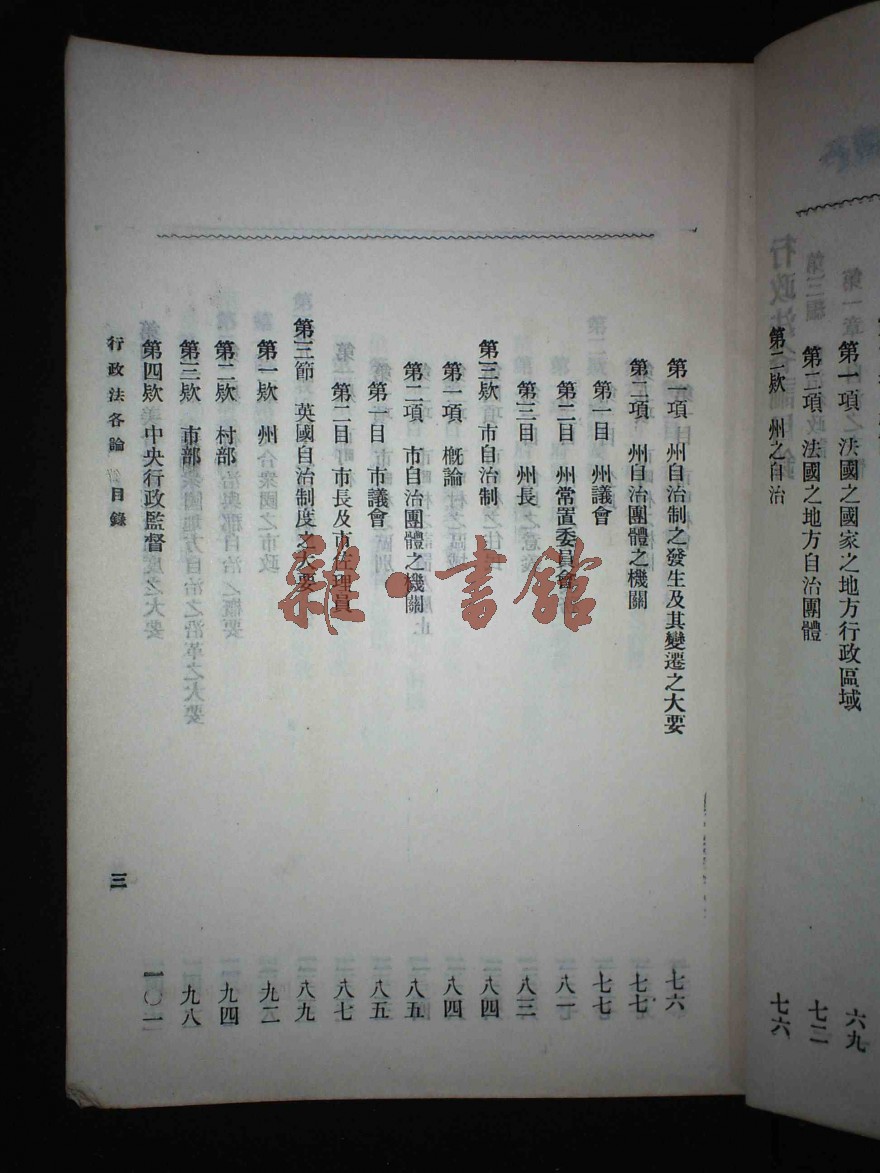 第一項　法國之國家之地方行政區域　六九
第二項　法國之地方自治團體　七二
第二欵　州之自治　七六
第一項　州自治制之發生及其變遷之大要　七六
第二項　州自治團體之機關　七七
第一目　州議會　七七
第二目　州常置委員會　八一
第三目　州長　八三
第三欵　市自治制　八四
第一項　概論　八四
第二項　市自治團體之機關　八五
第一目　市議會　八五
第二目　市長及市佐理員　八七
第三節　英國自治制度之大要　八九
第一欵　州　九二
第二欵　村部　九四
第三欵　市部　九八
第四欵　中央行政監督　一〇一
行政法各論　目錄　三
雜·書館